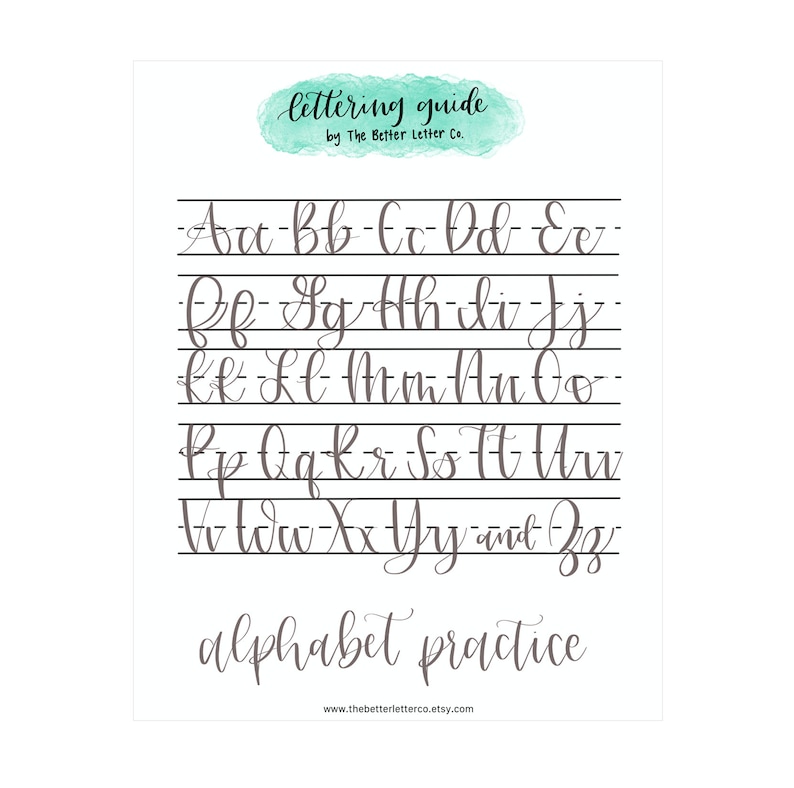 lettering guide
by The Better Letter Co.
Aa Bb Cc Dd Ee
Ff Gg Hh Ii Jj
Kk Ll Mm Nn Oo
Pp Qq Rr Ss Tt Uu
Vv Ww Xx Yy and Zz
alphabet practice
www.thebetterletterco.etsy.com